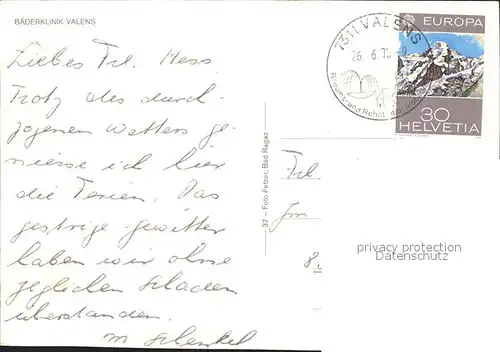 BÄDERKLINIK VALENS
Liebes Frl. Hess
Trotz des durch-
zogenen Wetters ge-
niesse ich hier
die Ferien. Das
gestrige Gewitter
haben wir ohne
jeglichen Schaden
überstanden.
M Schenkel
37 – Foto Fetzer, Bad Ragaz
7311 VALENS
26. 6. 75 -9
EUROPA
30
HELVETIA
Frl.
Im
8.
privacy protection
Datenschutz